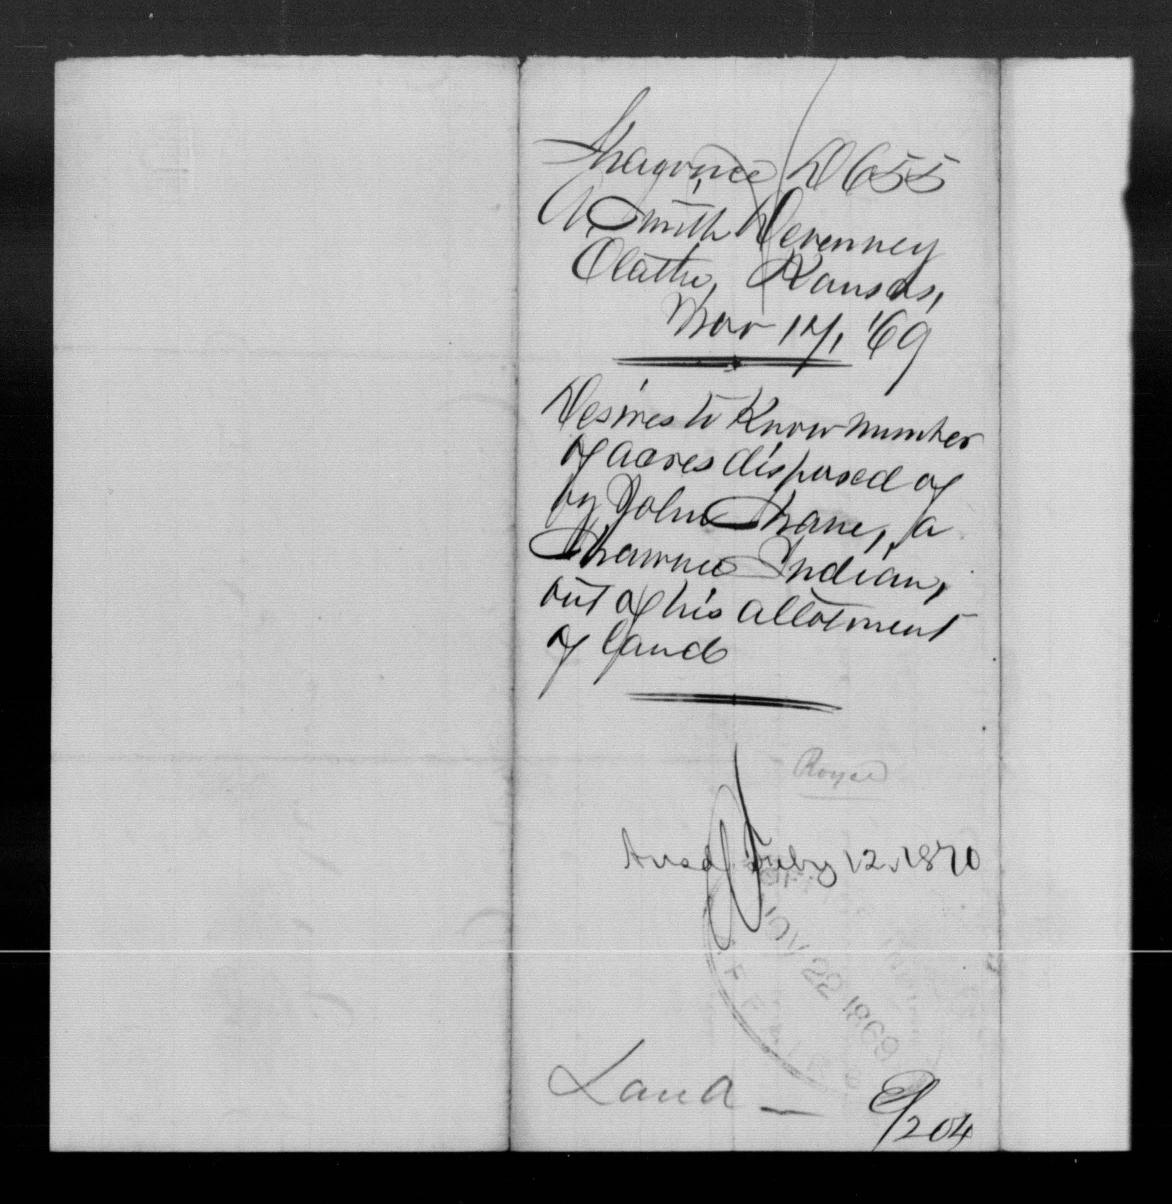 Shawnee D655
A Smith Devenney
Olathe, Kansas,
Nov 17, '69
Desires to know number
of acres disposed of
by John Shane, a
Shawnee Indian,
out of his allotment
of land
Royce
Ansd July 12, 1870
OFFICE INDIAN
NOV 22 1869
AFFAIRS
Land
E/204